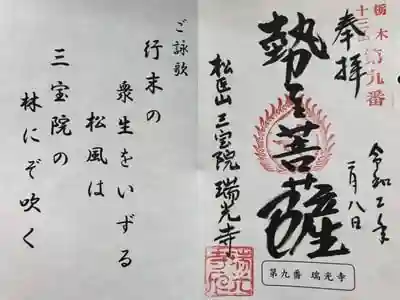 栃木
十三
第九番
奉拝
勢至菩薩
令和二年
月八日
三宝院 瑞光寺
第九番 瑞光寺
ご詠歌
行末の
衆生をいずる
松風は
三宝院の
林にぞ吹く